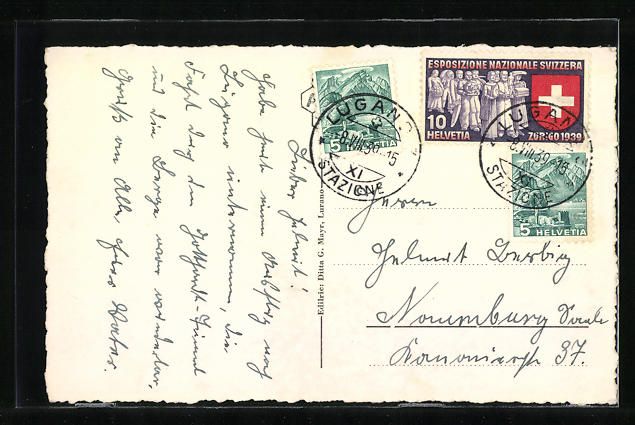 Lieber Helmut!
Habe heute einen Ausflug nach
Lugano unternommen, die
Fahrt durch den Gotthard-Tunnel
und die Berge war wunderbar,
Grüße von Alle, euer Vater.
Editrie: Ditta G. Mayr, Lugano
ESPOSIZIONE NAZIONALE SVIZZERA
10
HELVETIA
ZURIGO 1939
5
HELVETIA
5
HELVETIA
LUGANO
8.VIII.39.15
XI
STAZIONE
LUGANO
8.VIII.39.15
XI
STAZIONE
Herrn
Helmut
Naumburg Saale
Kanonierstr 37.